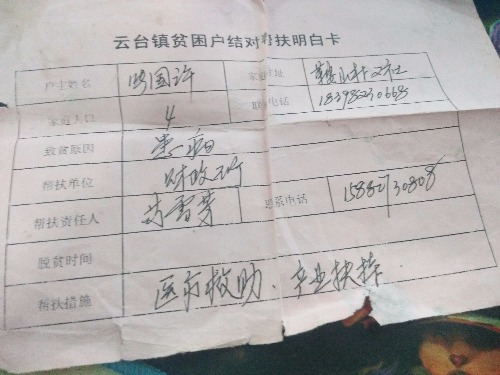 云台镇贫困户结对帮扶明白卡
户主姓名 国许 家庭住址 村二社
家庭人口 4 联系电话 18398230668
致贫原因 患病
帮扶单位 财政所
帮扶责任人 联系电话 15882730808
脱贫时间
帮扶措施 医疗救助、产业扶持